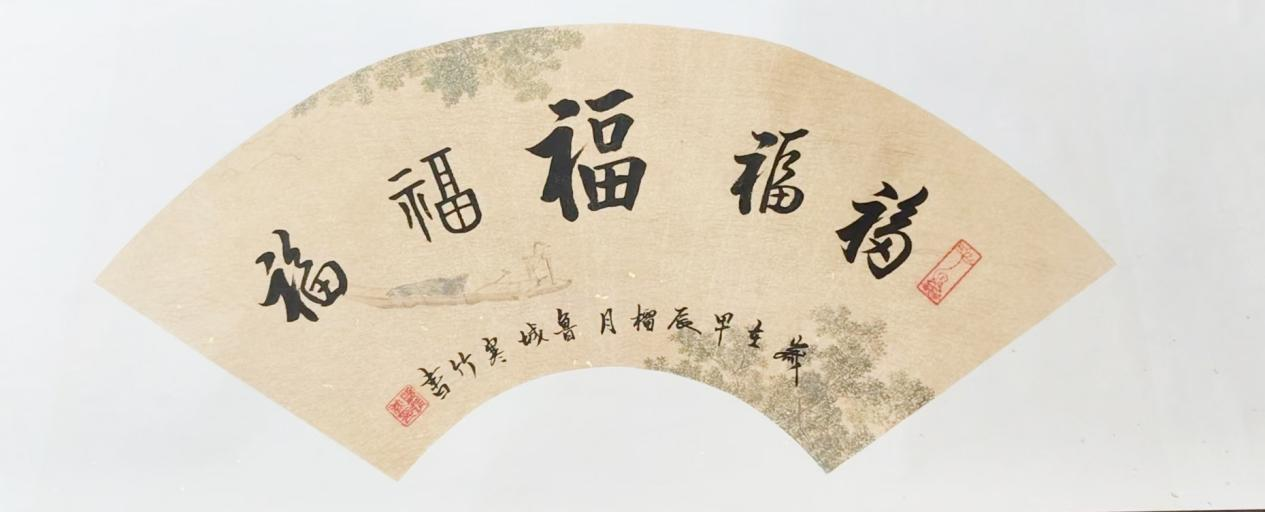 福福福福福
華在甲辰榴月魯城寒竹書